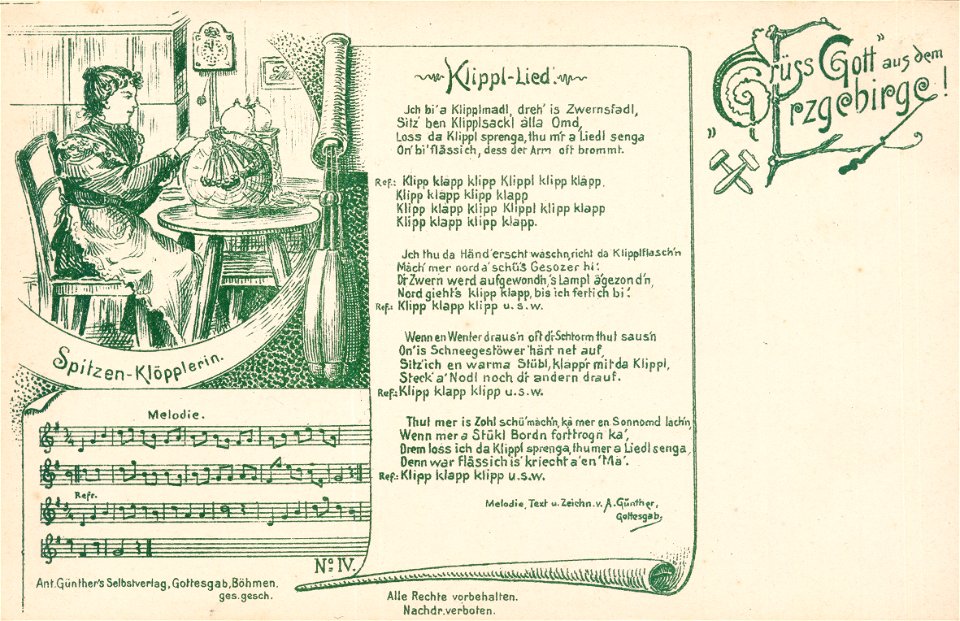 „Grüss Gott" aus dem
Erzgebirge!
Klippl-Lied.
Ich bi' a Klipplmadl, dreh' is Zwernsfadl,
Sitz' ben Klipplsackl älla Omd,
Loss da Klippl sprenga, thu m'r a Liedl senga
On' bi' flässich, dess der Arm oft brommt.
Ref.: Klipp klapp klipp Klippl klipp klapp,
Klipp klapp klipp klapp
Klipp klapp klipp Klippl klipp klapp
Klipp klapp klipp klapp.
Ich thu da Händ' erscht wäschn, richt da Klipplflasch'n
Mach' mer nord a' schü's Gesozer hi'.
D'r Zwern werd aufgewond'n, 's Lampl ä'gezon d'n,
Nord gieht's klipp klapp, bis ich fertich bi'.
Ref.: Klipp klapp klipp u.s.w.
Wenn en Wenter draus'n oft d'r Schtorm thut saus'n
On' is Schneegestöwer härt net auf,
Sitz' ich en warma Stübl, klapp'r mit da Klippl,
Steck' a' Nodl noch d'r andern drauf.
Ref.: Klipp klapp klipp u.s.w.
Thut mer is Zohl schü' mach'n, ka mer en Sonnomd lach'n,
Wenn mer a Stükl Bordn forttrog'n ka',
Drem loss ich da Klippl sprenga, thu mer a Liedl senga,
Denn war flässich is' kriecht a' en' Ma'.
Ref.: Klipp klapp klipp u.s.w.
Melodie, Text u. Zeichn. v. A. Günther,
Gottesgab.
Spitzen-Klöpplerin.
Melodie.
Refr.
No. IV.
Ant. Günther's Selbstverlag, Gottesgab, Böhmen.
ges. gesch.
Alle Rechte vorbehalten.
Nachdr. verboten.